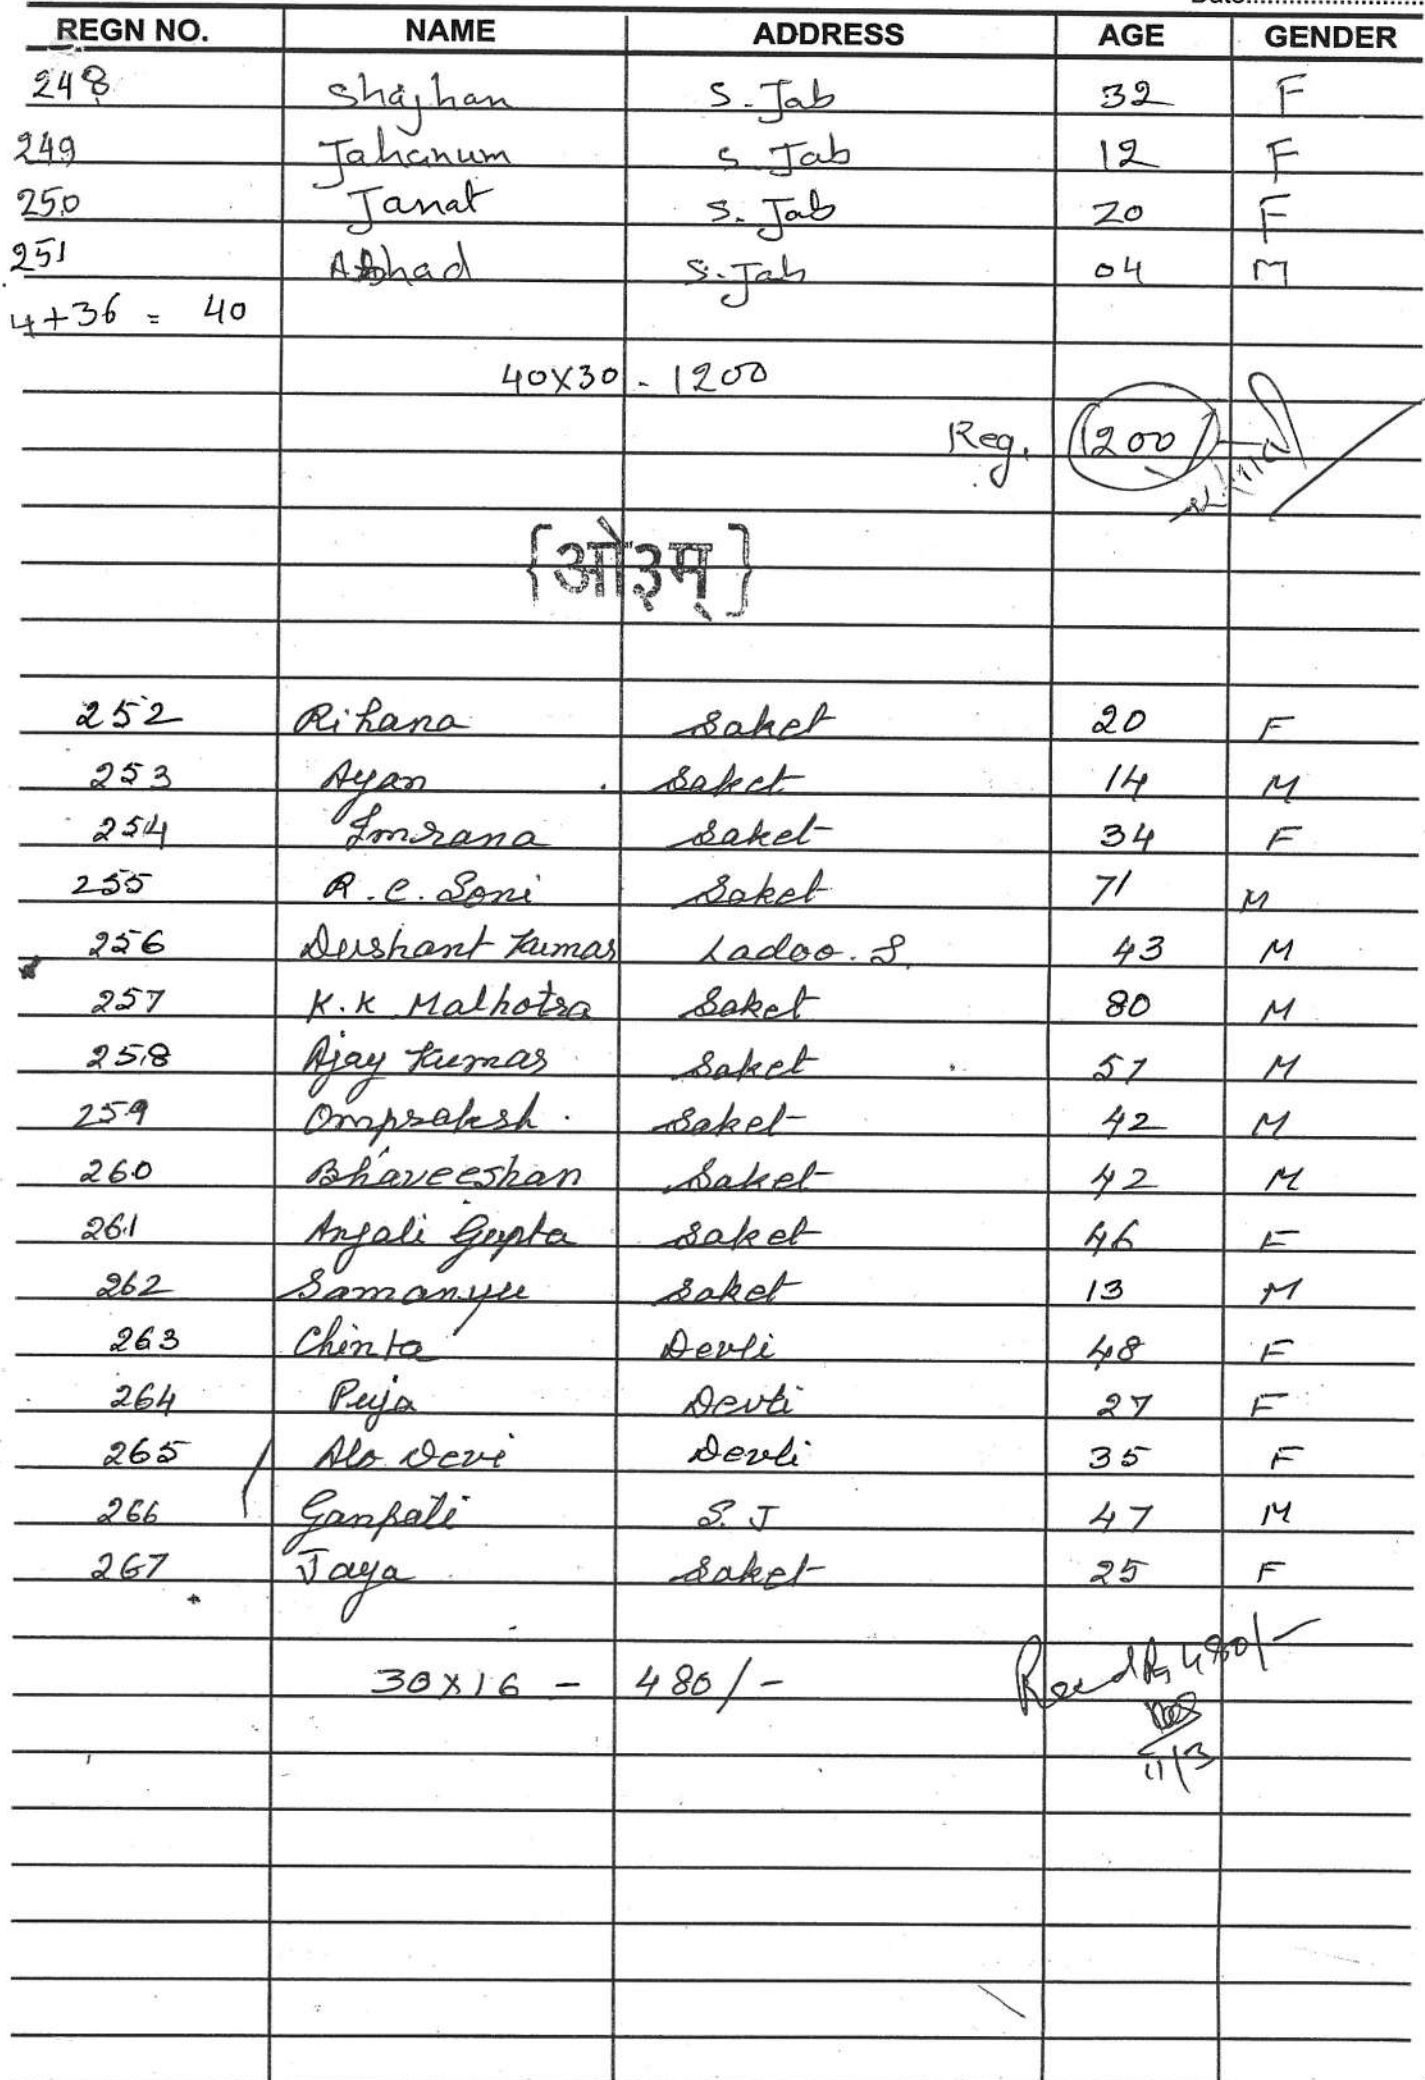 REGN NO. NAME ADDRESS AGE GENDER
248 Shajhan S. Jab 32 F
249 Jahanum S. Jab 12 F
250 Janat S. Jab 20 F
251 S. Jab 04 M
4+36 = 40
40X30 - 1200
Reg. 1200/-
{ओ३म्}
252 Rihana Saket 20 F
253 Ayan Saket 14 M
254 Imrana Saket 34 F
255 R.C. Soni Saket 71 M
256 Dushant Kumar Ladoo. S. 43 M
257 K.K Malhotra Saket 80 M
258 Ajay Kumar Saket 57 M
259 Ompraksh Saket 42 M
260 Bhaveeshan Saket 42 M
261 Anjali Gupta Saket 46 F
262 Samanyu Saket 13 M
263 Chinta Devli 48 F
264 Puja Devli 27 F
265 Alo Devi Devli 35 F
266 Ganpati S. J 47 M
267 Jaya Saket 25 F
30X16 - 480/- Recd Rs 480/-
11/3